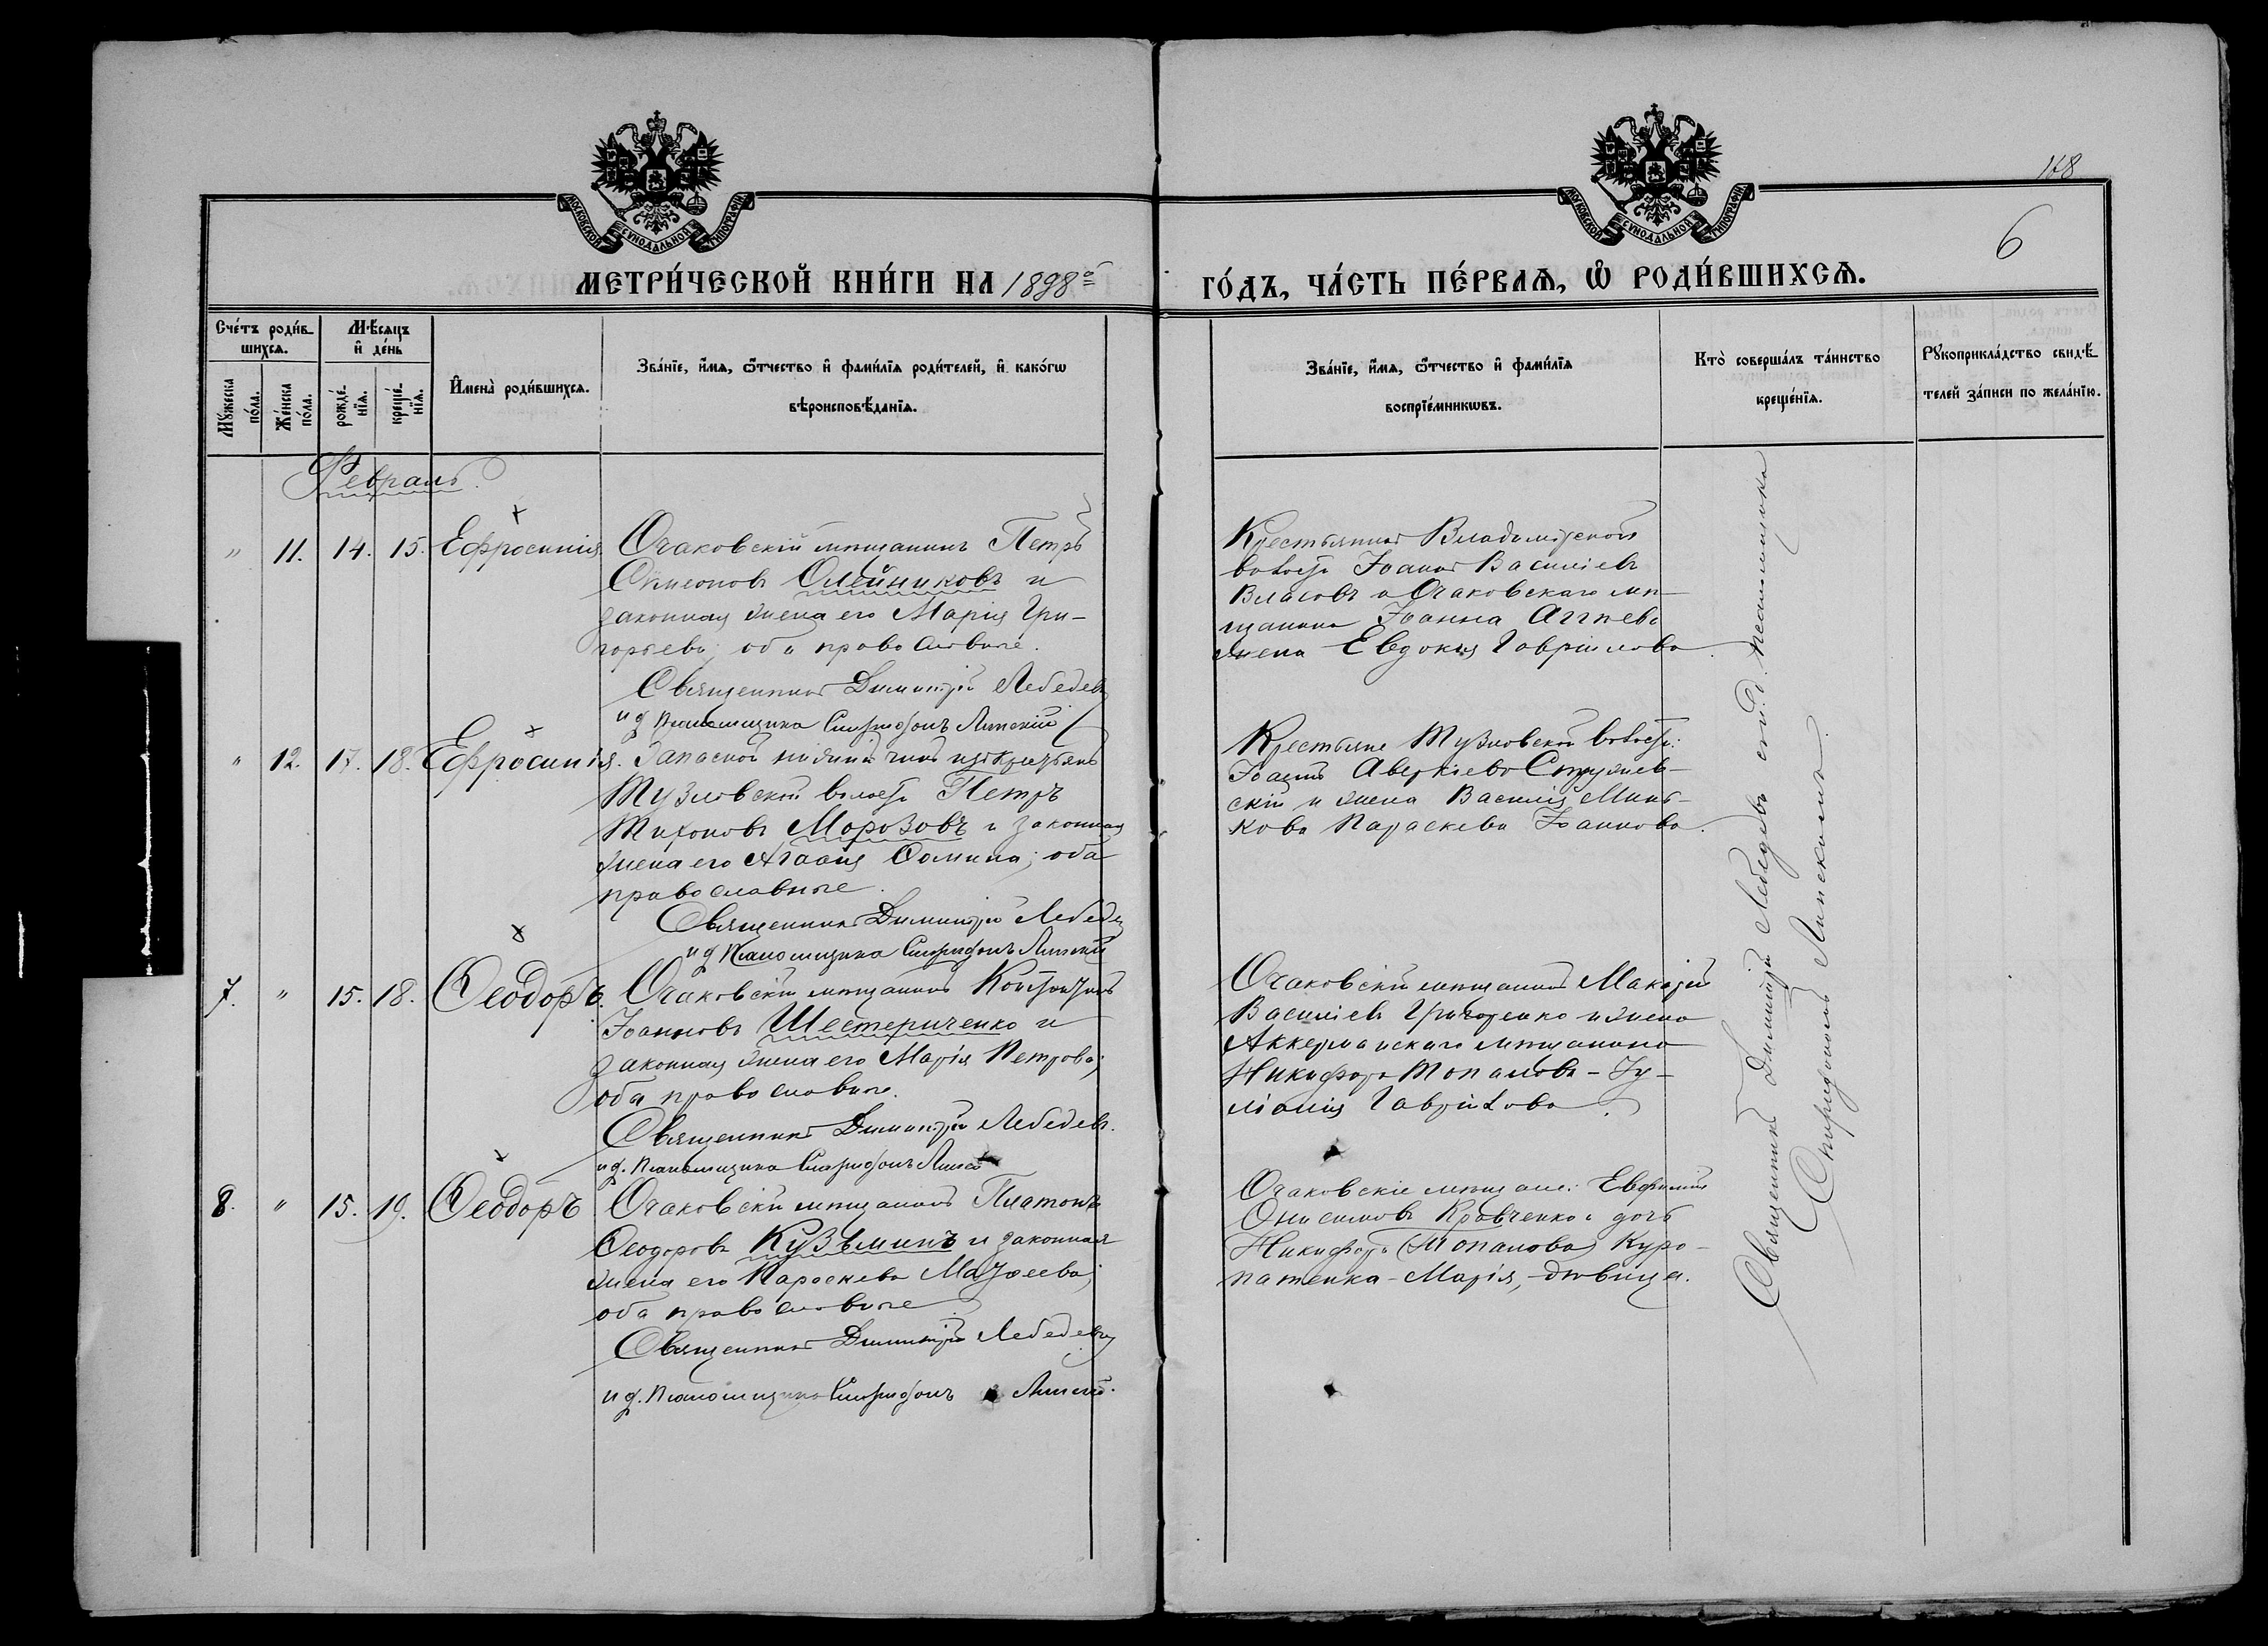 148
6
МОСКОВСКОЙ СѴНОДАЛЬНОЙ ТИПОГРАФІИ
МОСКОВСКОЙ СѴНОДАЛЬНОЙ ТИПОГРАФІИ
МЕТРИ́ЧЕСКОЙ КНИ́ГИ НА 1898й ГО́ДЪ, ЧА́СТЬ ПЕ́РВАѦ, Ѡ҆ РОДИ́ВШИХСѦ.
Сче́тъ роди́в-
шихсѧ.
Мꙋ́жеска по́ла.
Же́нска по́ла.
Мѣ́сѧцъ
и҆ де́нь
рожде́-
нїѧ.
креще́-
нїѧ.
И҆мена̀ роди́вшихсѧ.
Зва́нїе, и҆́мѧ, ѻ҆́тчество и҆ фами́лїѧ роди́телей, и҆ како́гѡ
вѣроисповѣ́данїѧ.
Зва́нїе, и҆́мѧ, ѻ҆́тчество и҆ фами́лїѧ
воспрїе́мникѡвъ.
Кто̀ соверша́лъ та́инство
креще́нїѧ.
Рꙋкоприкла́дство свидѣ́-
телей за́писи по жела́нїю.
Февраль.
" 11. 14. 15. Ефросинія. Очаковскій мѣщанинъ Петръ
Симеоновъ Олейниковъ и
законная жена его Марія Гри-
горьева; оба православные.
Священникъ Димитрій Лебедевъ
и д. псаломщика Спиридонъ Липскій
Крестьянинъ Владимірской
волости Іоаннъ Василіевъ
Власовъ и Очаковскаго мѣ-
щанина Іоанна Аггѣева
жена Евдокія Гавріилова.
" 12. 17. 18. Ефросинія. Запасной нижній чинъ изъ крестьянъ
Тузловской волости Петръ
Тихоновъ Морозовъ и законная
жена его Агаѳія Ѳомина; оба
православные.
Священникъ Димитрій Лебедевъ
и д псаломщика Спиридонъ Липскій
Крестьяне Тузловской волости:
Іоаннъ Аверкіевъ Стружев-
скій и жена Василія Минь-
кова Параскева Іоаннова.
7. " 15. 18. Ѳеодоръ. Очаковскій мѣщанинъ Константинъ
Іоанновъ Шестериченко и
законная жена его Марія Петрова;
оба православные.
Священникъ Димитрій Лебедевъ.
и д. псаломщика Спиридонъ Липскій
Очаковскій мѣщанинъ Макарій
Василіевъ Григоренко и жена
Аккерманскаго мѣщанина
Никифора Топалова - Іу-
ліанія Гаврілова.
8. " 15. 19. Ѳеодоръ Очаковскій мѣщанинъ Платонъ
Ѳеодоровъ Кузьминъ и законная
жена его Параскева Матѳеева;
оба православные
Священникъ Димитрій Лебедевъ
и д. псаломщика Спиридонъ Липскій.
Очаковскіе мѣщане: Евфимій
Онисимовъ Кравченко и дочь
Никифора (Топалова) Куро-
патенка - Марія, - дѣвица.
Священникъ Димитрій Лебедевъ съ и. д. псаломщика
Спиридономъ Липскимъ.